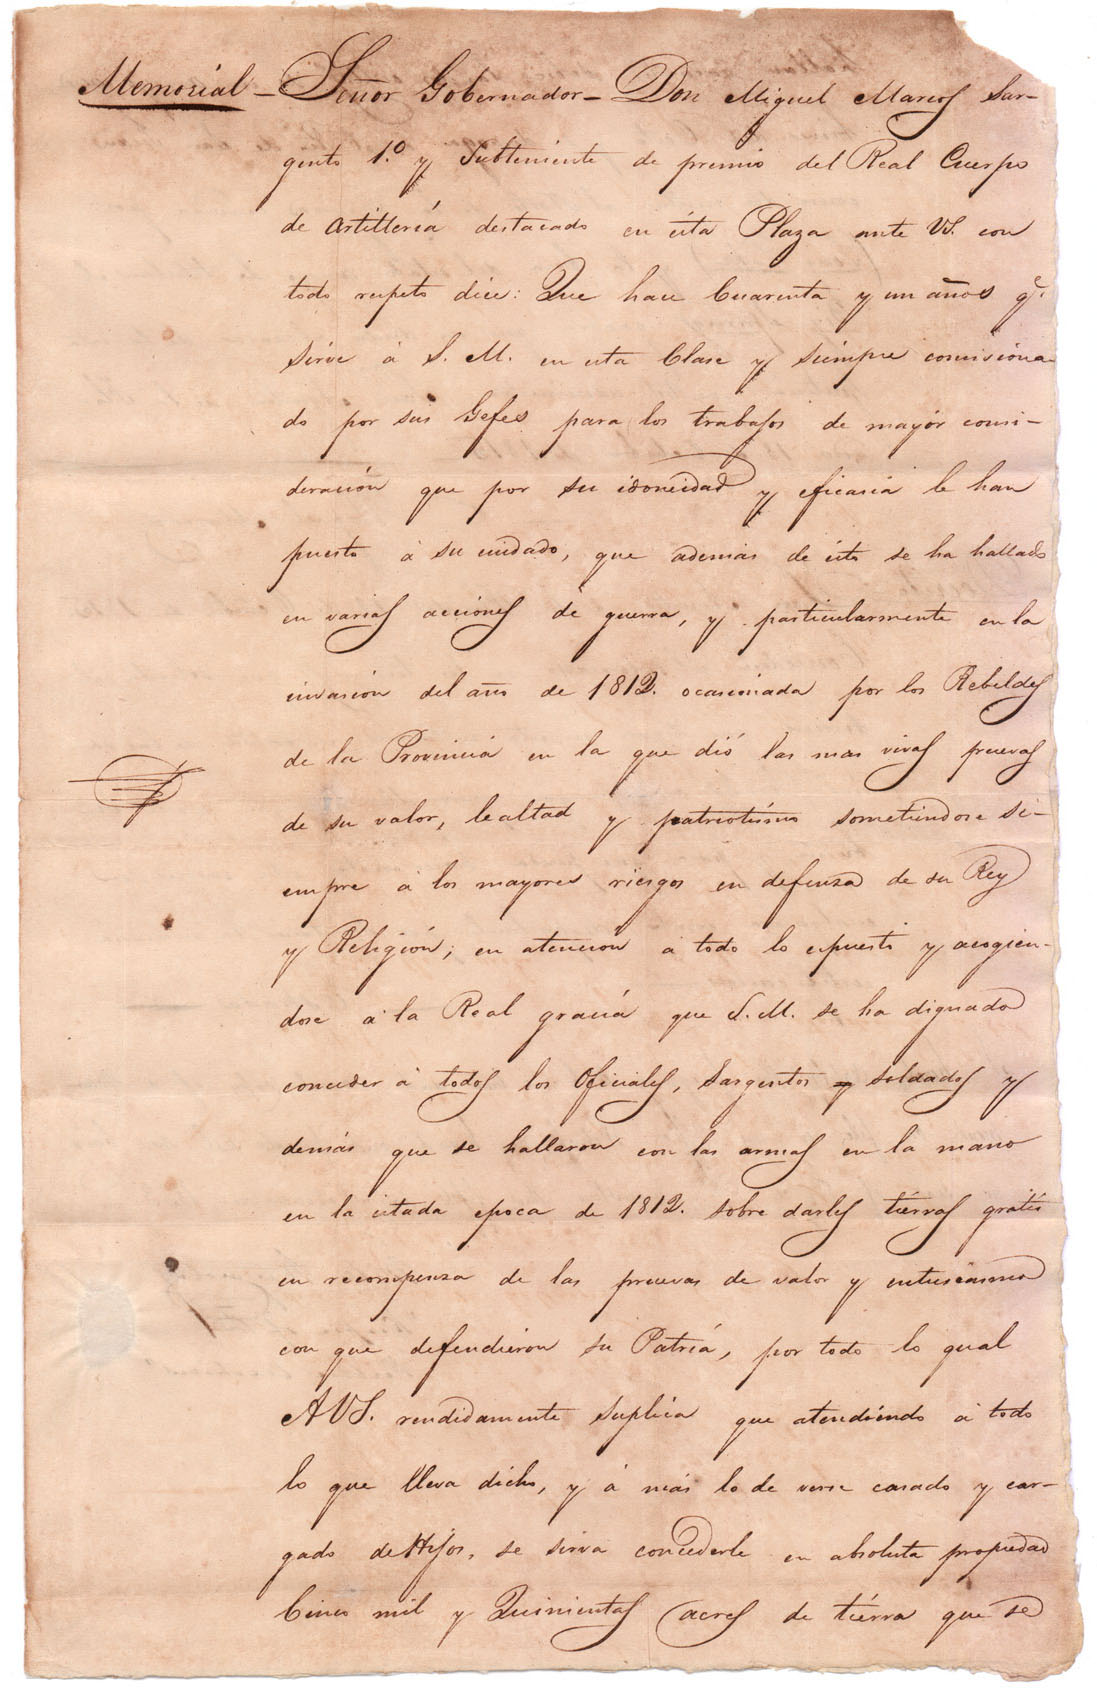 Memorial - Señor Gobernador - Don Miguel Marcos Sar-
gento 1.º y Subteniente de premio del Real Cuerpo
de Artilleria destacado en ésta Plaza ante VS. con
todo respeto dice: Que hace Cuarenta y un años q.e
sirve á S. M. en esta Clase y siempre comisiona-
do por sus Gefes para los trabajos de mayór consi-
deración que por su idoneidad y eficasia le han
puesto á su cuidado, que además de ésto se ha hallado
en varias acciones de guerra, y particularmente en la
invasión del año de 1812. ocasionada por los Rebeldes
de la Provincia en la que dió las mas vivas pruevas
de su valor, lealtad y patriotísmo sometiendose si-
empre á los mayores riesgos en defenza de su Rey
y Religión; en atención á todo lo espuesto y acogien-
dose á la Real gracia que S. M. se ha dignado
conceder á todos los Oficiales, Sargentos y Soldados y
demás que se hallaron con las armas en la mano
en la citada epoca de 1812. sobre darles tierras gratis
en recompenza de las pruevas de valor y entusiasmo
con que defendieron su Patria, por todo lo qual
A VS. rendidamente suplica que atendiendo á todo
lo que lleva dicho, y á más lo de verse casado y car-
gado de Hijos, se sirva concederle en absoluta propiedad
Cinco mil y Quinientos acres de tiérra que se